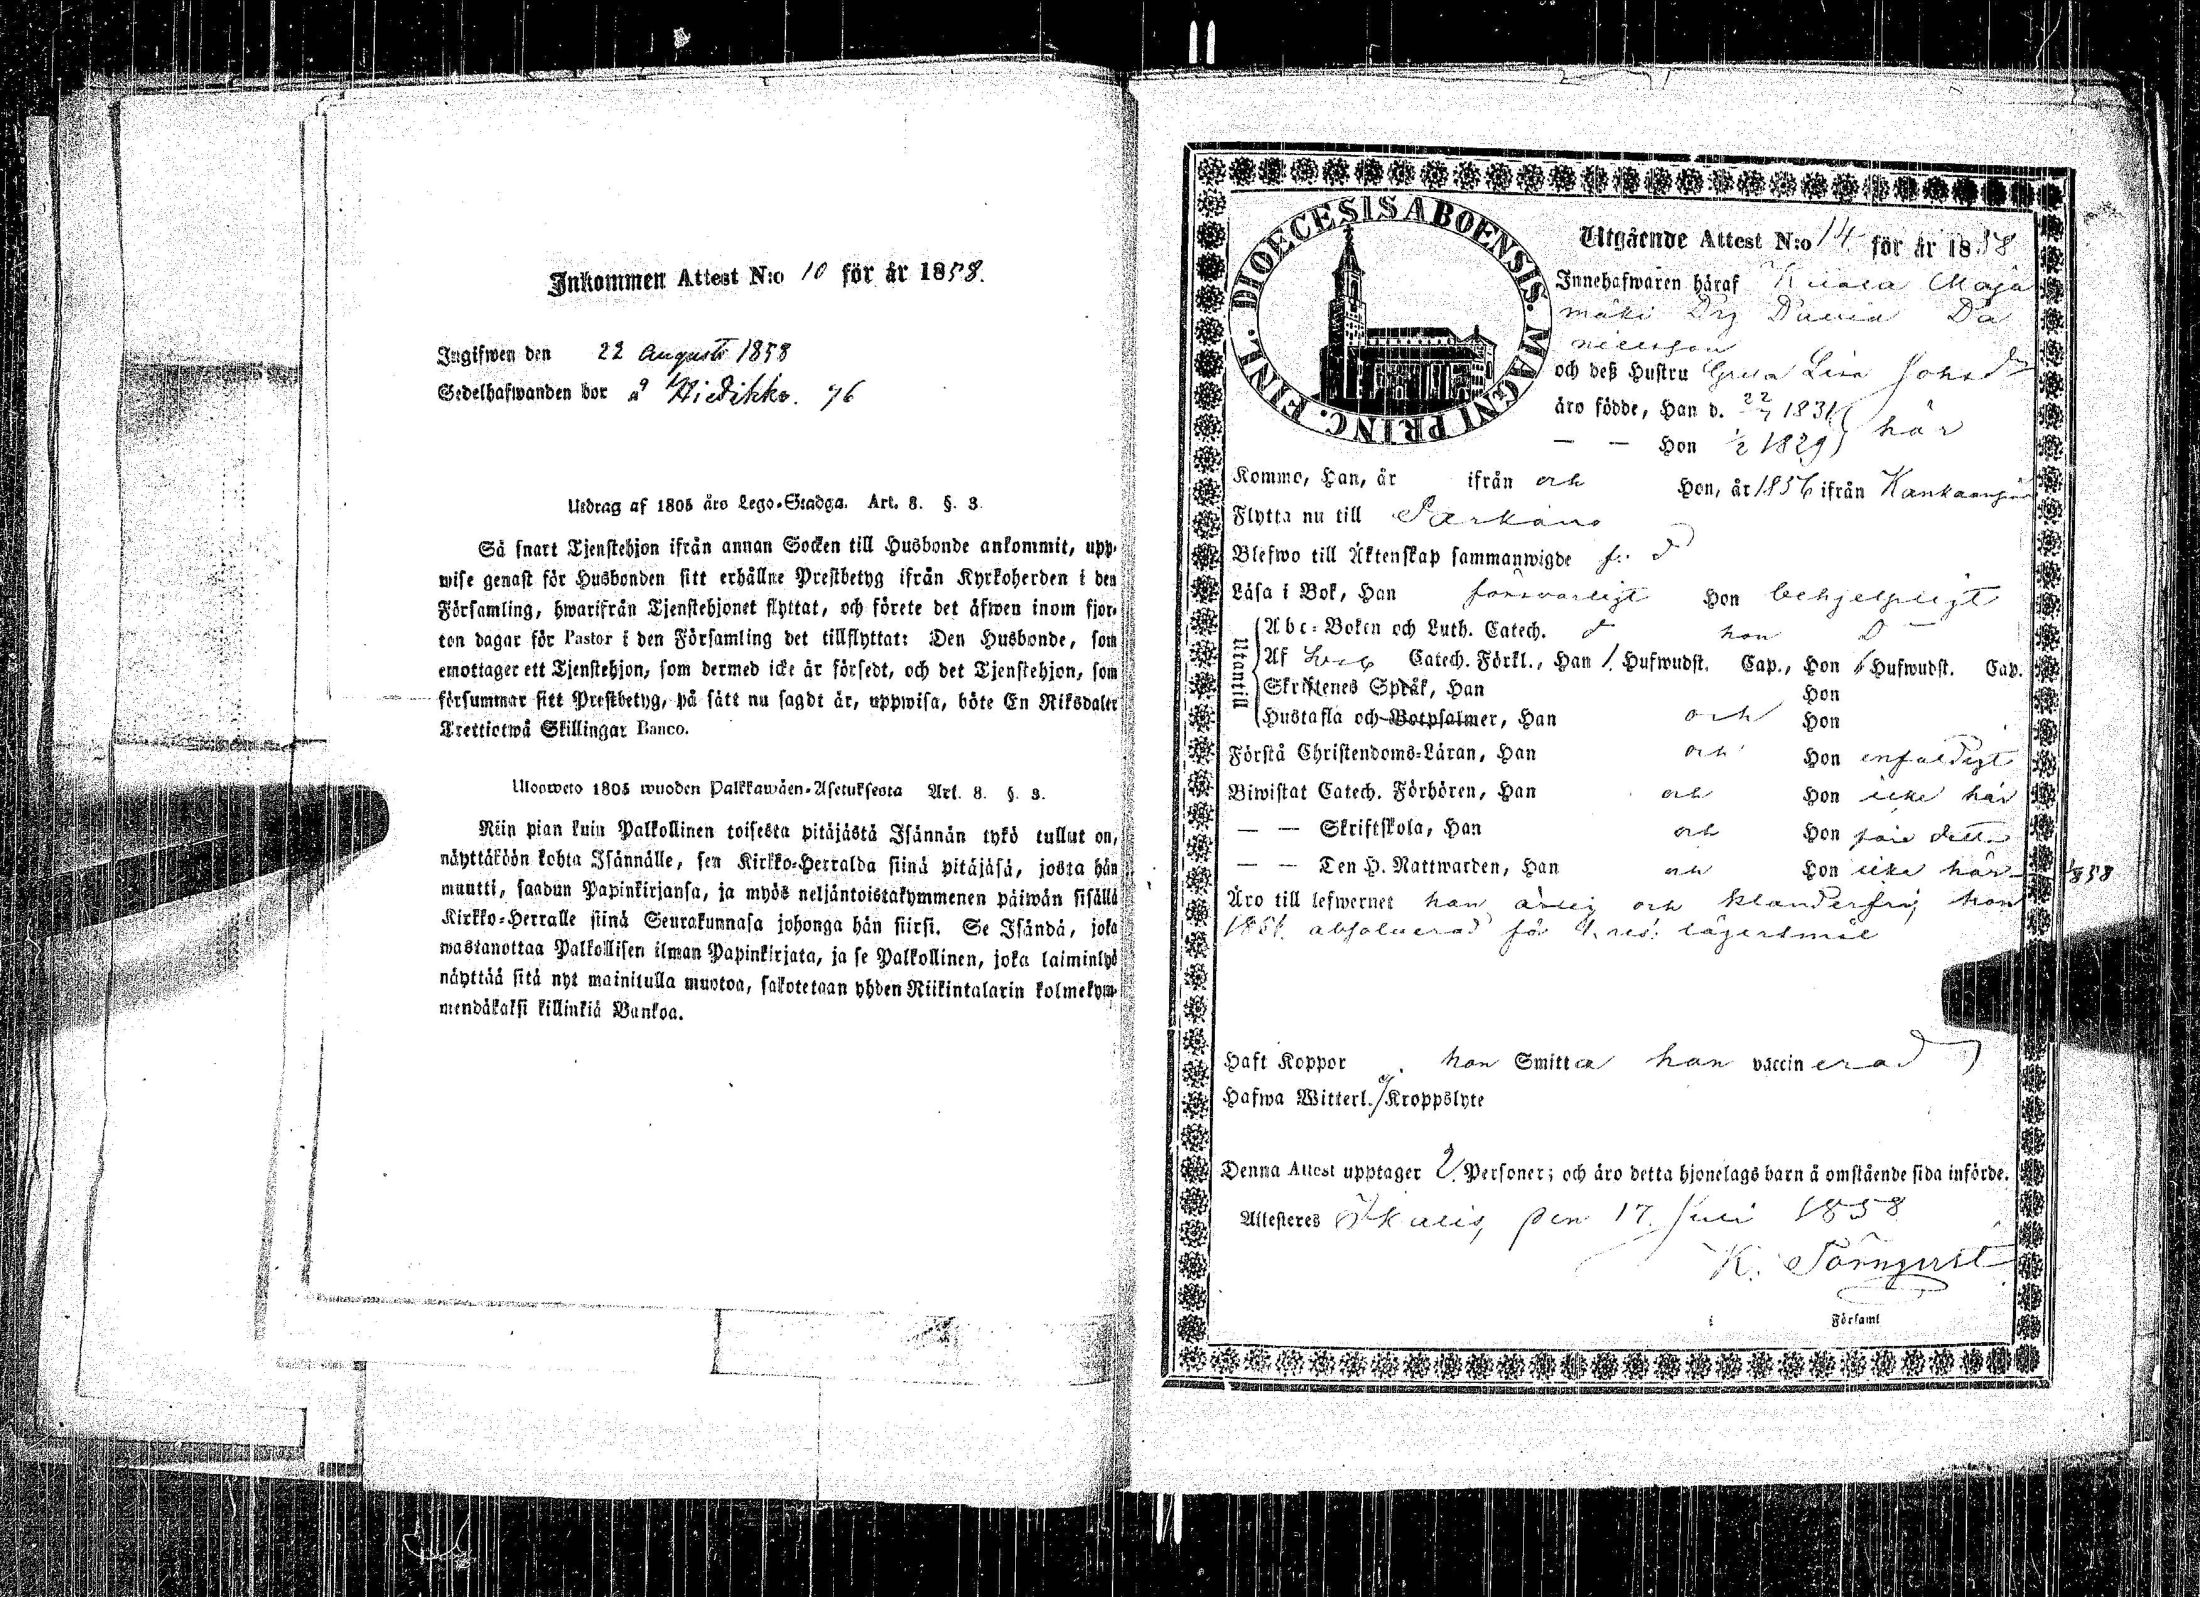 Inkommen Attest N:o 10 för år 1858.
Ingifwen den 22 Augusti 1858
Sedelhafwanden bor å 76
Utdrag af 1805 års Lego-Stadga. Art. 8. §. 3.
Så snart Tjenstehjon ifrån annan Socken till Husbonde ankommit, upp-
wise genast för Husbonden sitt erhållne Prestbetyg ifrån Kyrkoherden i den
Församling, hwarifrån Tjenstehjonet flyttat, och förete det äfwen inom fjor-
ton dagar för Pastor i den Församling det tillflyttat: Den Husbonde, som
emottager ett Tjenstehjon, som dermed icke är försedt, och det Tjenstehjon, som
försummar sitt Prestbetyg, på sätt nu sagdt är, uppwisa, böte En Riksdaler
Trettiotwå Skillingar Banco.
Ulosweto 1805 wuoden Palkkawäen-Asetuksesta Art. 8. §. 3.
Niin pian kuin Palkollinen toisesta pitäjästä Isännän tykö tullut on,
näyttäköön kohta Isännälle, sen Kirkko-Herralda siinä pitäjäsä, josta hän
muutti, saadun Papinkirjansa, ja myös neljäntoistakymmenen päiwän sisällä
Kirkko-Herralle siinä Seurakunnasa johonga hän siirsi. Se Isändä, joka
wastanottaa Palkollisen ilman Papinkirjata, ja se Palkollinen, joka laiminlyö
näyttää sitä nyt mainitulla muotoa, sakotetaan yhden Riikintalarin kolmekym-
mendäkaksi killinkiä Bankoa.
DIOECESIS ABOENSIS. MAGNI PRINC. FINL.
Utgående Attest N:o 14 för år 1858
Innehafwaren häraf Maja
mäki Drg David Da
nielsson
och deß Hustru Greta Lisa Johsdr
äro födde, Han d. 22/7 1831
— — Hon 1/2 1829 här
Kommo, Han, år ifrån och Hon, år 1856 ifrån Kankaanpää
Flytta nu till Parkano
Blefwo till Äktenskap sammanwigde
Läsa i Bok, Han förswarligt Hon behjelpligt
Utantill
Abc-Boken och Luth. Catech. d hon d
Af Catech. Förkl., Han 1. Hufwudst. Cap., Hon Hufwudst. Cap.
Skriftenes Språk, Han Hon
Hustafla och Botpsalmer, Han och Hon
Förstå Christendoms-Läran, Han och Hon enfaldigt
Biwistat Catech. Förhören, Han och Hon icke här
— — Skriftskola, Han och Hon före detta
— — Den H. Nattwarden, Han och Hon icke här 1858
Äro till lefwernet han ärlig och klanderfri, hon
1851 absolverad för 1. res. lägersmål
Haft Koppor hon Smitta han vaccinerad
Hafwa Witterl. ej Kroppslyte
Denna Attest upptager 2 Personer; och äro detta hjonelags barn å omstående sida införde.
Attesteres Ikalis, den 17 Juli 1858
K. Törnqvist
i Församl